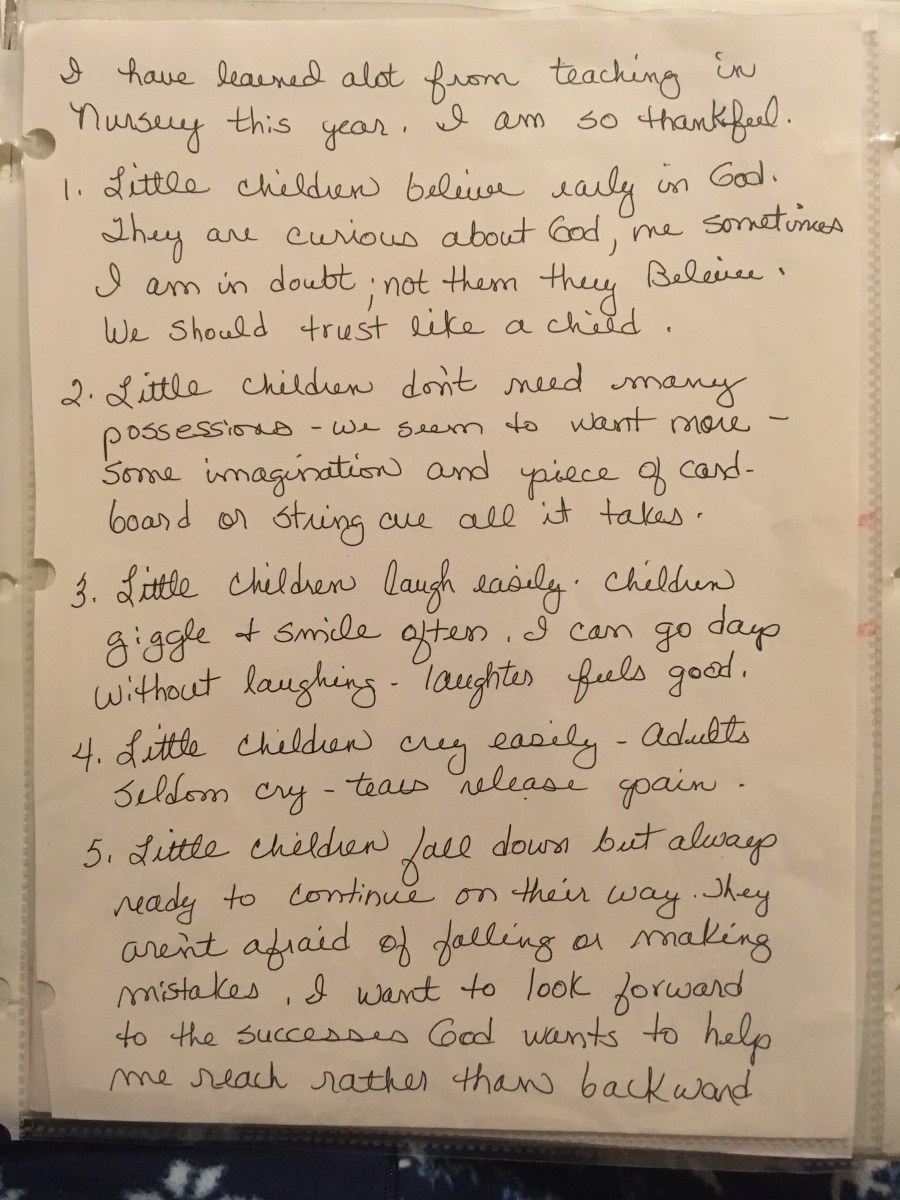 I have learned alot from teaching in
Nursery this year. I am so thankful.
1. Little children believe early in God.
They are curious about God, me sometimes
I am in doubt; not them they Believe.
We should trust like a child.
2. Little children don't need many
possessions - we seem to want more -
Some imagination and piece of card-
board or string are all it takes.
3. Little children laugh easily. Children
giggle & smile often. I can go days
without laughing - laughter feels good.
4. Little children cry easily - Adults
Seldom cry - tears release pain.
5. Little children fall down but always
ready to continue on their way. They
aren't afraid of falling or making
mistakes. I want to look forward
to the successes God wants to help
me reach rather than backward